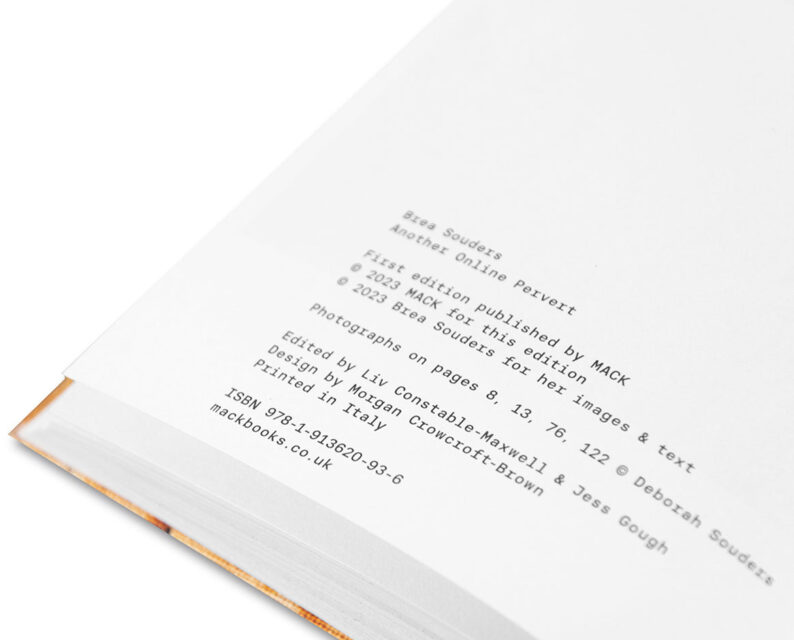 Brea Souders
Another Online Pervert
First edition published by MACK
© 2023 MACK for this edition
© 2023 Brea Souders for her images & text
Photographs on pages 8, 13, 76, 122 © Deborah Souders
Edited by Liv Constable-Maxwell & Jess Gough
Design by Morgan Crowcroft-Brown
Printed in Italy
ISBN 978-1-913620-93-6
mackbooks.co.uk